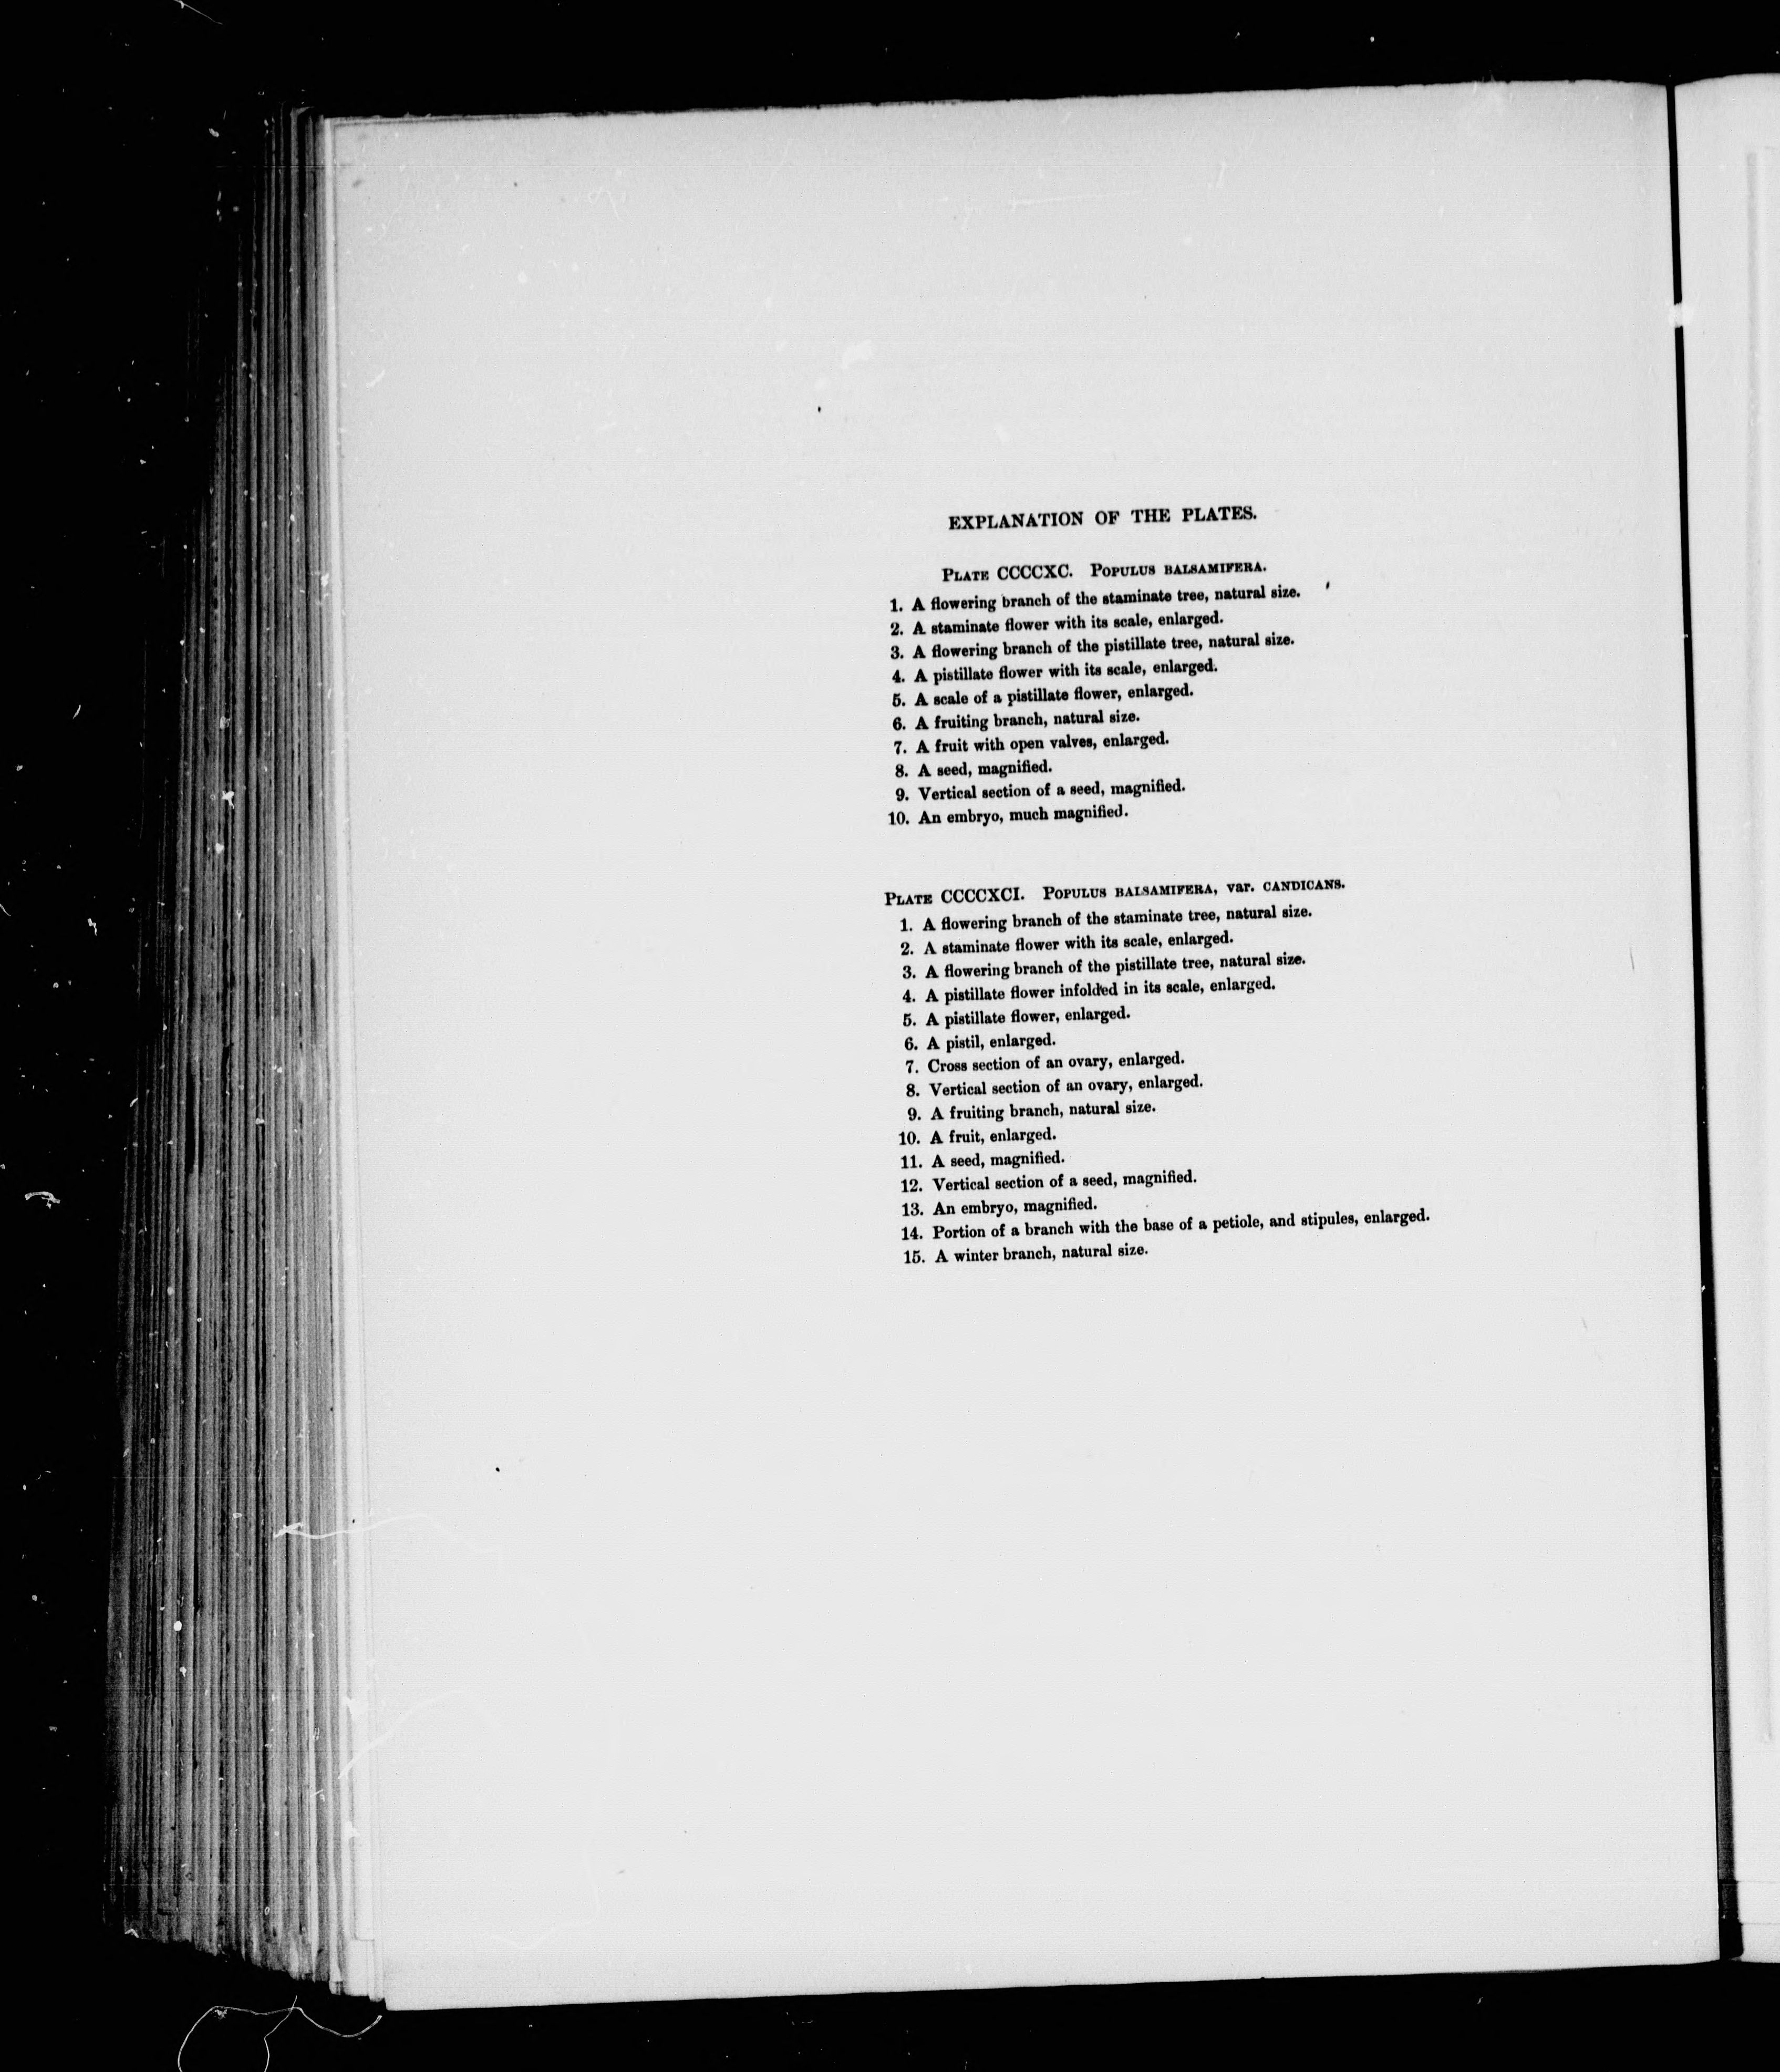 EXPLANATION OF THE PLATES.
PLATE CCCCXC. POPULUS BALSAMIFERA.
1. A flowering branch of the staminate tree, natural size.
2. A staminate flower with its scale, enlarged.
3. A flowering branch of the pistillate tree, natural size.
4. A pistillate flower with its scale, enlarged.
5. A scale of a pistillate flower, enlarged.
6. A fruiting branch, natural size.
7. A fruit with open valves, enlarged.
8. A seed, magnified.
9. Vertical section of a seed, magnified.
10. An embryo, much magnified.
PLATE CCCCXCI. POPULUS BALSAMIFERA, var. CANDICANS.
1. A flowering branch of the staminate tree, natural size.
2. A staminate flower with its scale, enlarged.
3. A flowering branch of the pistillate tree, natural size.
4. A pistillate flower infolded in its scale, enlarged.
5. A pistillate flower, enlarged.
6. A pistil, enlarged.
7. Cross section of an ovary, enlarged.
8. Vertical section of an ovary, enlarged.
9. A fruiting branch, natural size.
10. A fruit, enlarged.
11. A seed, magnified.
12. Vertical section of a seed, magnified.
13. An embryo, magnified.
14. Portion of a branch with the base of a petiole, and stipules, enlarged.
15. A winter branch, natural size.